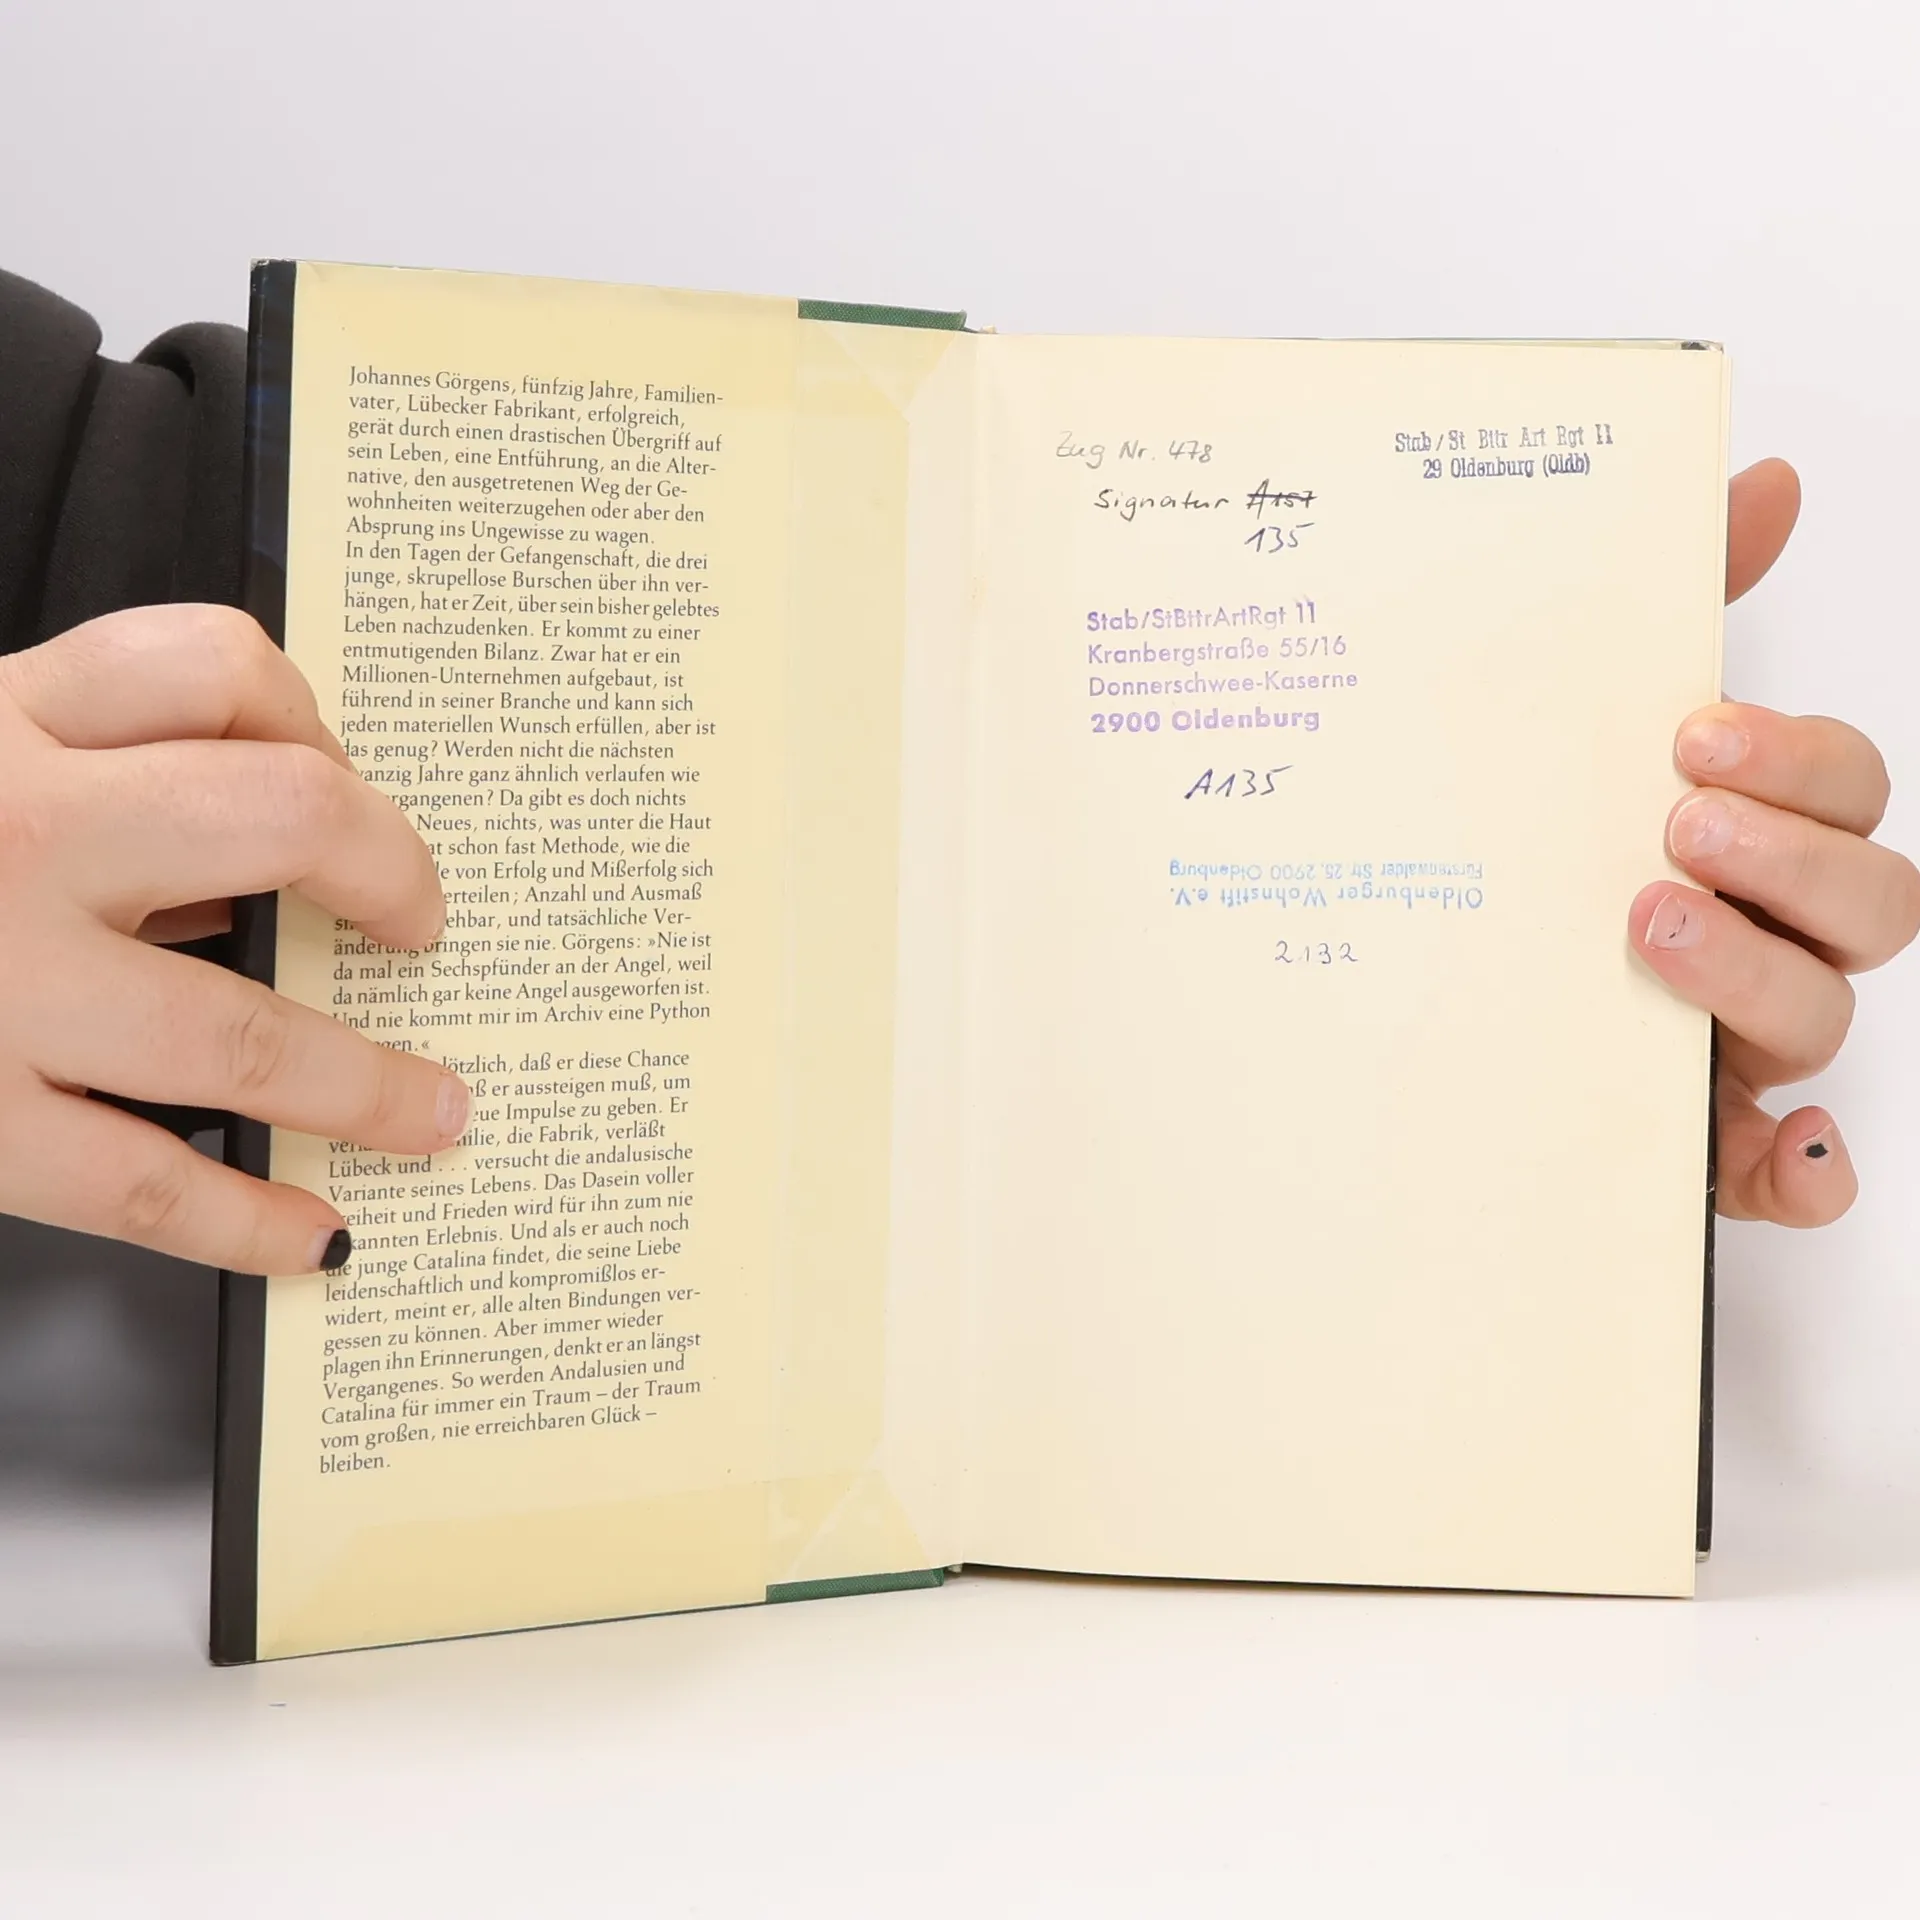 Johannes Görgens, fünfzig Jahre, Familien-
vater, Lübecker Fabrikant, erfolgreich,
gerät durch einen drastischen Übergriff auf
sein Leben, eine Entführung, an die Alter-
native, den ausgetretenen Weg der Ge-
wohnheiten weiterzugehen oder aber den
Absprung ins Ungewisse zu wagen.
In den Tagen der Gefangenschaft, die drei
junge, skrupellose Burschen über ihn ver-
hängen, hat er Zeit, über sein bisher gelebtes
Leben nachzudenken. Er kommt zu einer
entmutigenden Bilanz. Zwar hat er ein
Millionen-Unternehmen aufgebaut, ist
führend in seiner Branche und kann sich
jeden materiellen Wunsch erfüllen, aber ist
das genug? Werden nicht die nächsten
Jahre ganz ähnlich verlaufen wie
Da gibt es doch nichts
Neues, nichts, was unter die Haut
schon fast Methode, wie die
von Erfolg und Mißerfolg sich
Anzahl und Ausmaß
und tatsächliche Ver-
änderung bringen sie nie. Görgens: »Nie ist
da mal ein Sechspfünder an der Angel, weil
da nämlich gar keine Angel ausgeworfen ist.
Und nie kommt mir im Archiv eine Python
daß er diese Chance
er aussteigen muß, um
Impulse zu geben. Er
die Fabrik, verläßt
Lübeck und . . . versucht die andalusische
Variante seines Lebens. Das Dasein voller
und Frieden wird für ihn zum nie
Erlebnis. Und als er auch noch
die junge Catalina findet, die seine Liebe
leidenschaftlich und kompromißlos er-
widert, meint er, alle alten Bindungen ver-
gessen zu können. Aber immer wieder
plagen ihn Erinnerungen, denkt er an längst
Vergangenes. So werden Andalusien und
Catalina für immer ein Traum – der Traum
vom großen, nie erreichbaren Glück –
bleiben.
Zug Nr. 478
Signatur A157
135
Stab/St Bttr Art Rgt 11
29 Oldenburg (Oldb)
Stab/StBttrArtRgt 11
Kranbergstraße 55/16
Donnerschwee-Kaserne
2900 Oldenburg
A135
Oldenburger Wohnstift e.V.
Fürstenwalder Str. 25, 2900 Oldenburg
2.132